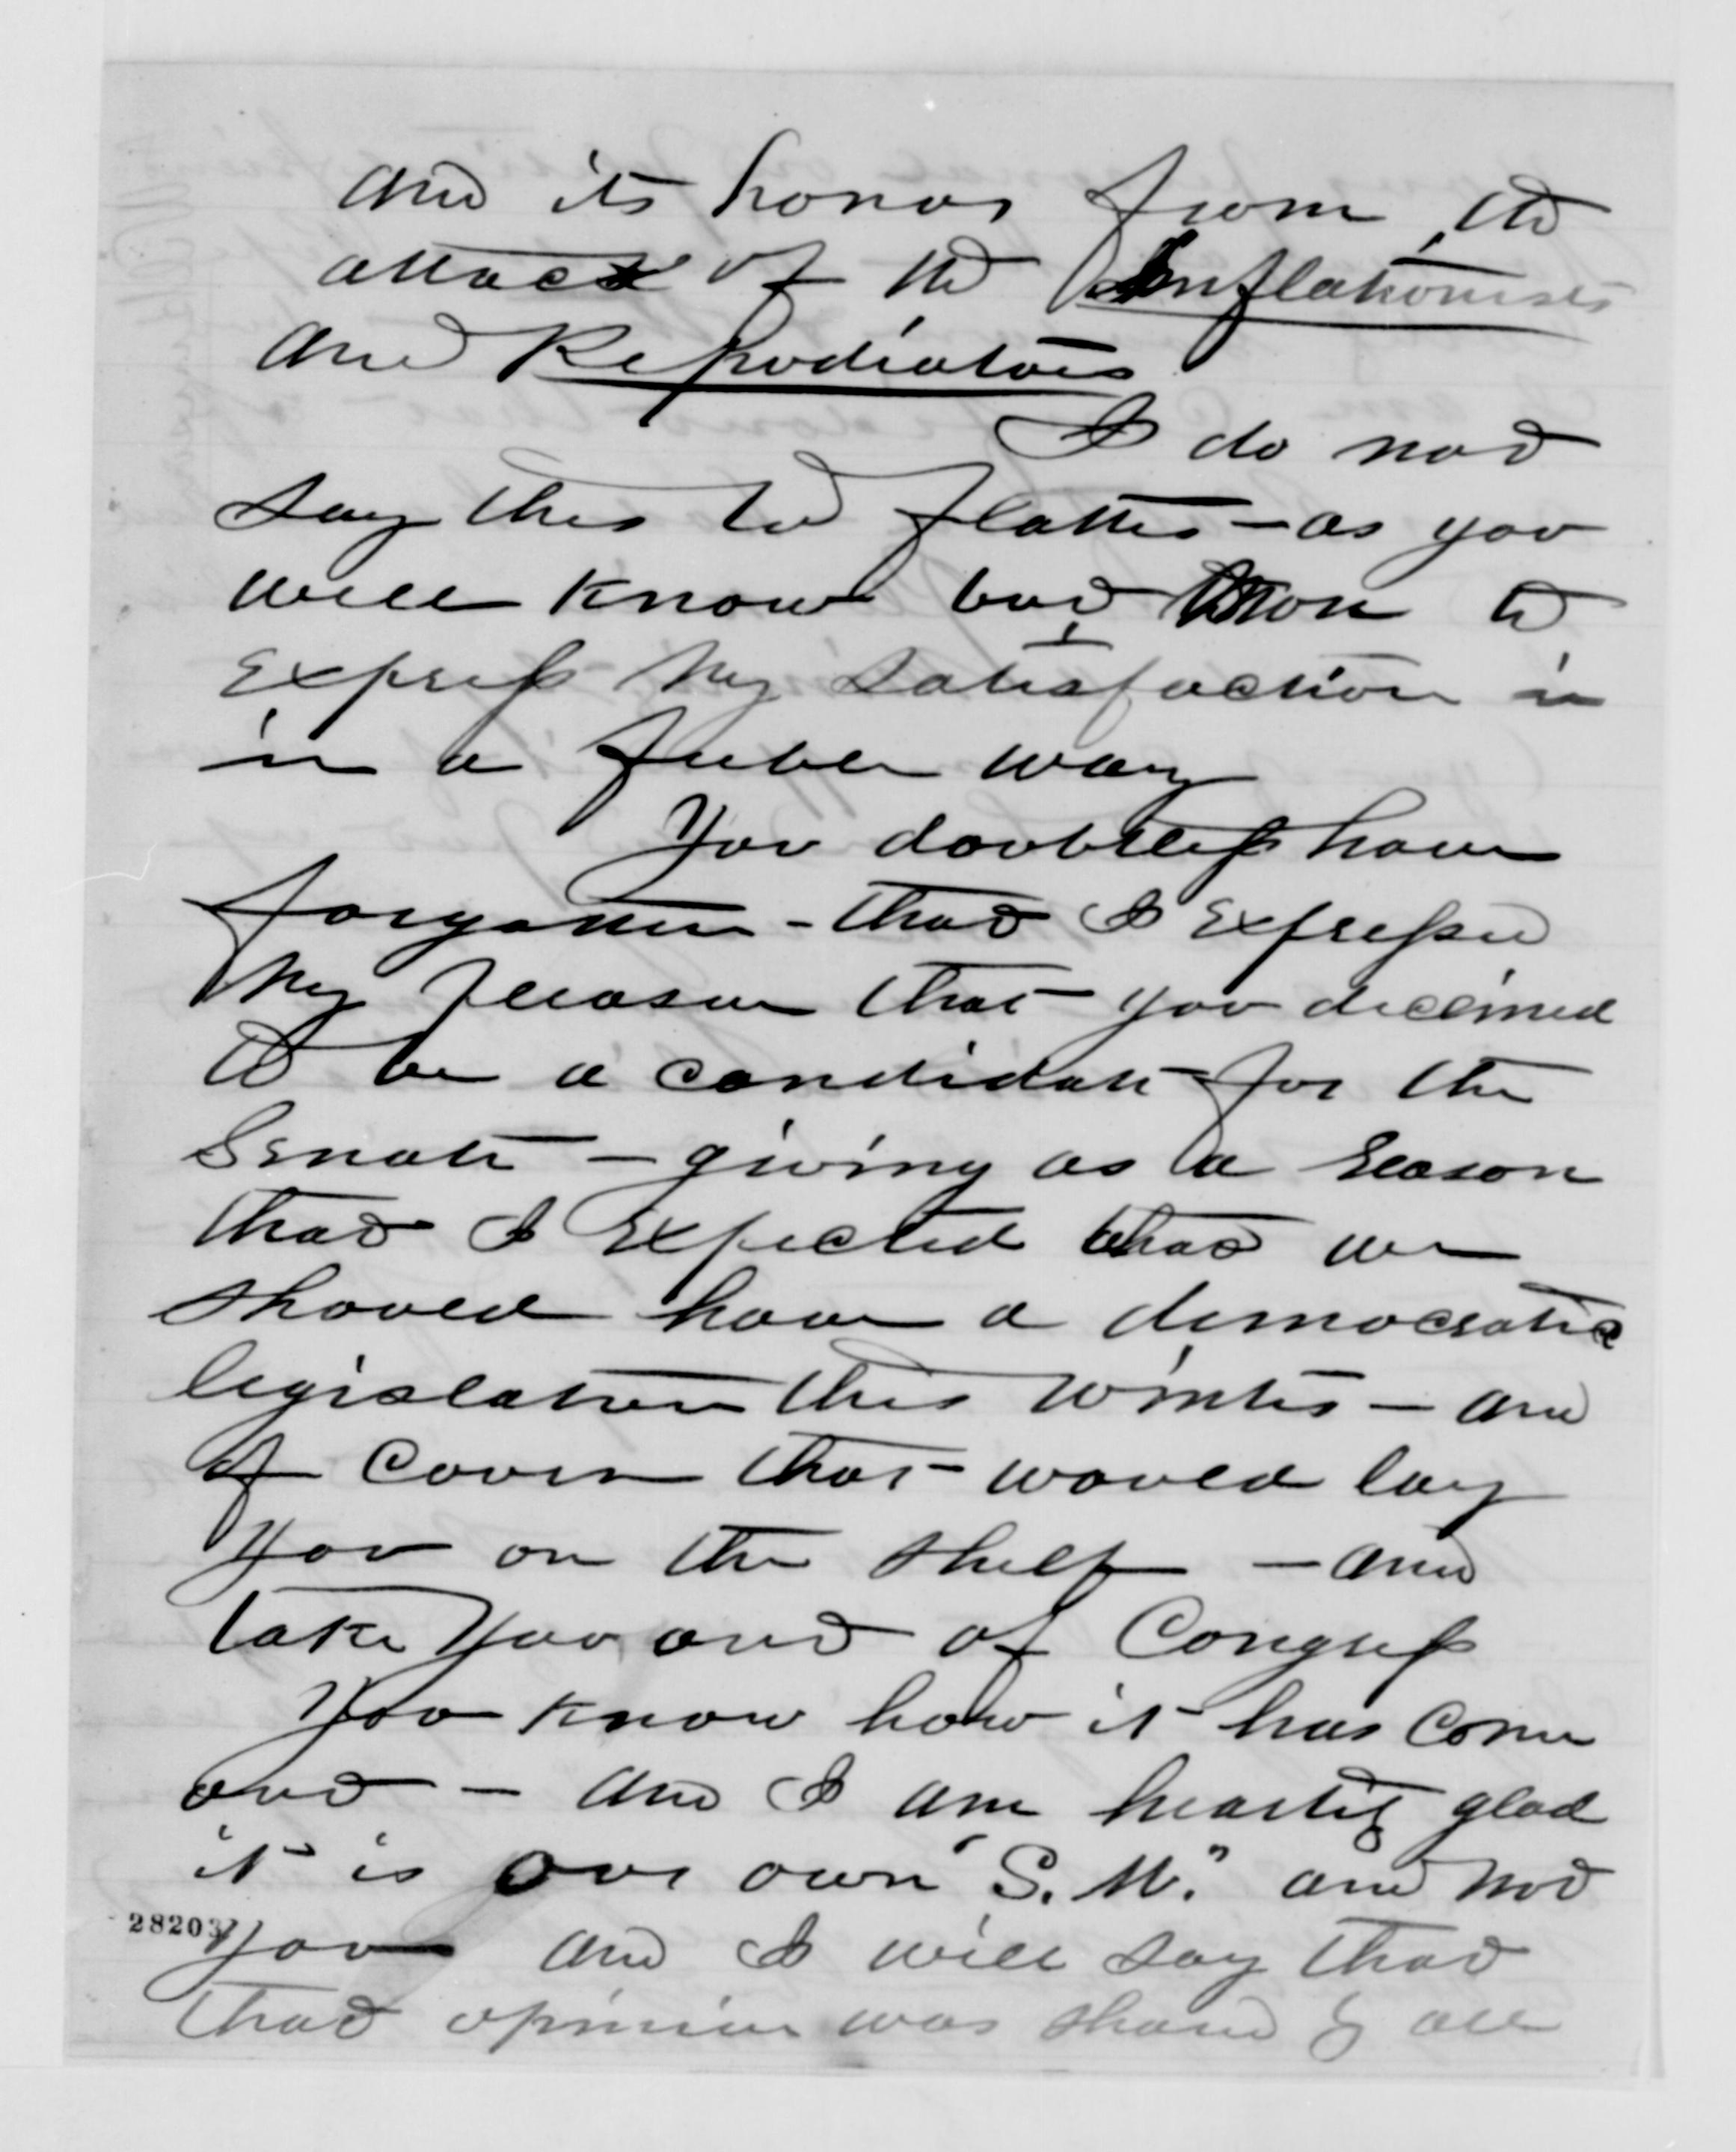 and its honor from the
attack of the Inflationists
and Repudiators
I do not
say this to flatter - as you
well know but more to
Express my satisfaction in
in a feeble way
You doubtless have
forgotten - that I Expressed
my pleasure that you declined
to be a candidate for the
Senate - giving as a reason
that I Expected that we
should have a democratic
legislature this winter - and
of course that would lay
you on the shelf - and
take you out of Congress
You know how it has come
out - and I am heartily glad
it is our own "S. M." and not
28203
you and I will say that
that opinion was shared by all